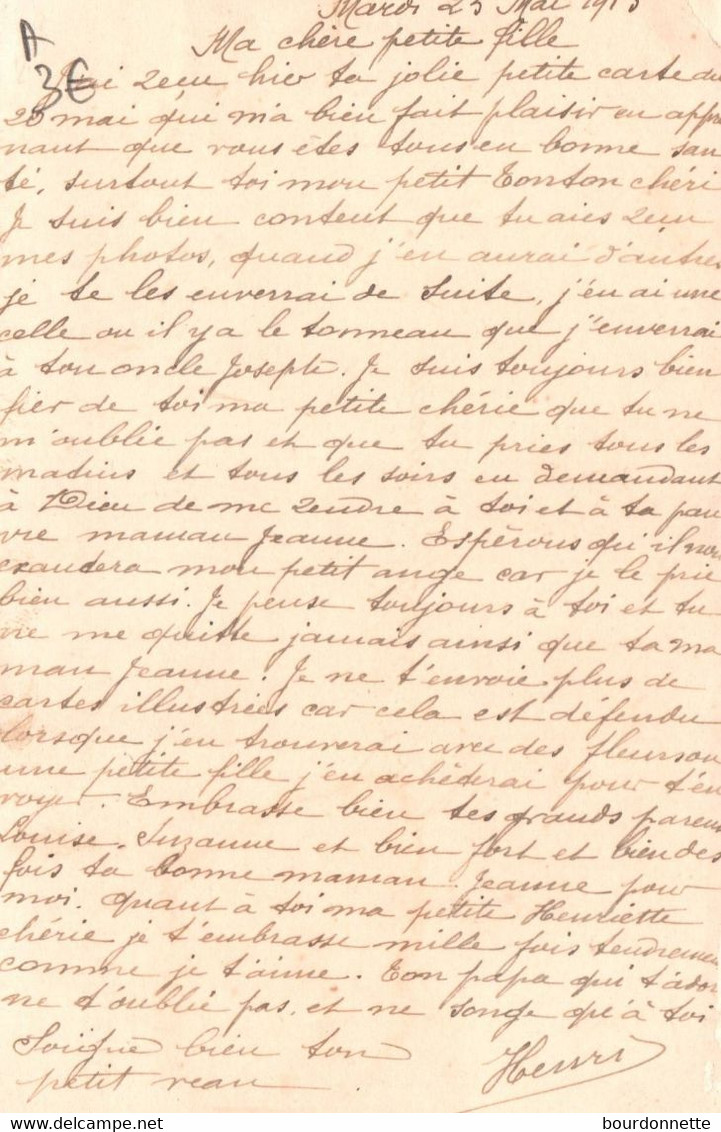 Mardi 25 Mai 1915
Ma chère petite fille
A
3€
J'ai recu hier ta jolie petite carte du
20 mai qui m'a bien fait plaisir en appre
nant que vous êtes tous en bonne san
té, surtout toi mon petit Tonton chéri
Je suis bien content que tu aies recu
mes photos, quand j'en aurai d'autres
je te les enverrai de suite, j'en ai une
celle ou il y a le tonneau que j'enverrai
à ton oncle Joseph. Je suis toujours bien
fier de toi ma petite chérie que tu ne
m'oublie pas et que tu pries tous les
matins et tous les soirs en demandant
à Dieu de me rendre à toi et à ta pau
vre maman Jeanne. Espérons qu'il nous
exaudera mon petit ange car je le prie
bien aussi. Je pense toujours à toi et tu
ne me quitte jamais ainsi que ta ma
man Jeanne. Je ne t'envoie plus de
cartes illustrées car cela est défendu
lorsque j'en trouverai avec des fleurs ou
une petite fille j'en achèterai pour t'en
voyer. Embrasse bien tes grands parents
Louise. Suzanne et bien fort et bien des
fois ta bonne maman Jeanne pour
moi. Quant à toi ma petite Henriette
chérie je t'embrasse mille fois tendrement
comme je t'aime. Ton papa qui t'adore
ne t'oublie pas et ne songe qu'à toi
Soigne bien ton
petit veau
Henri
bourdonnette